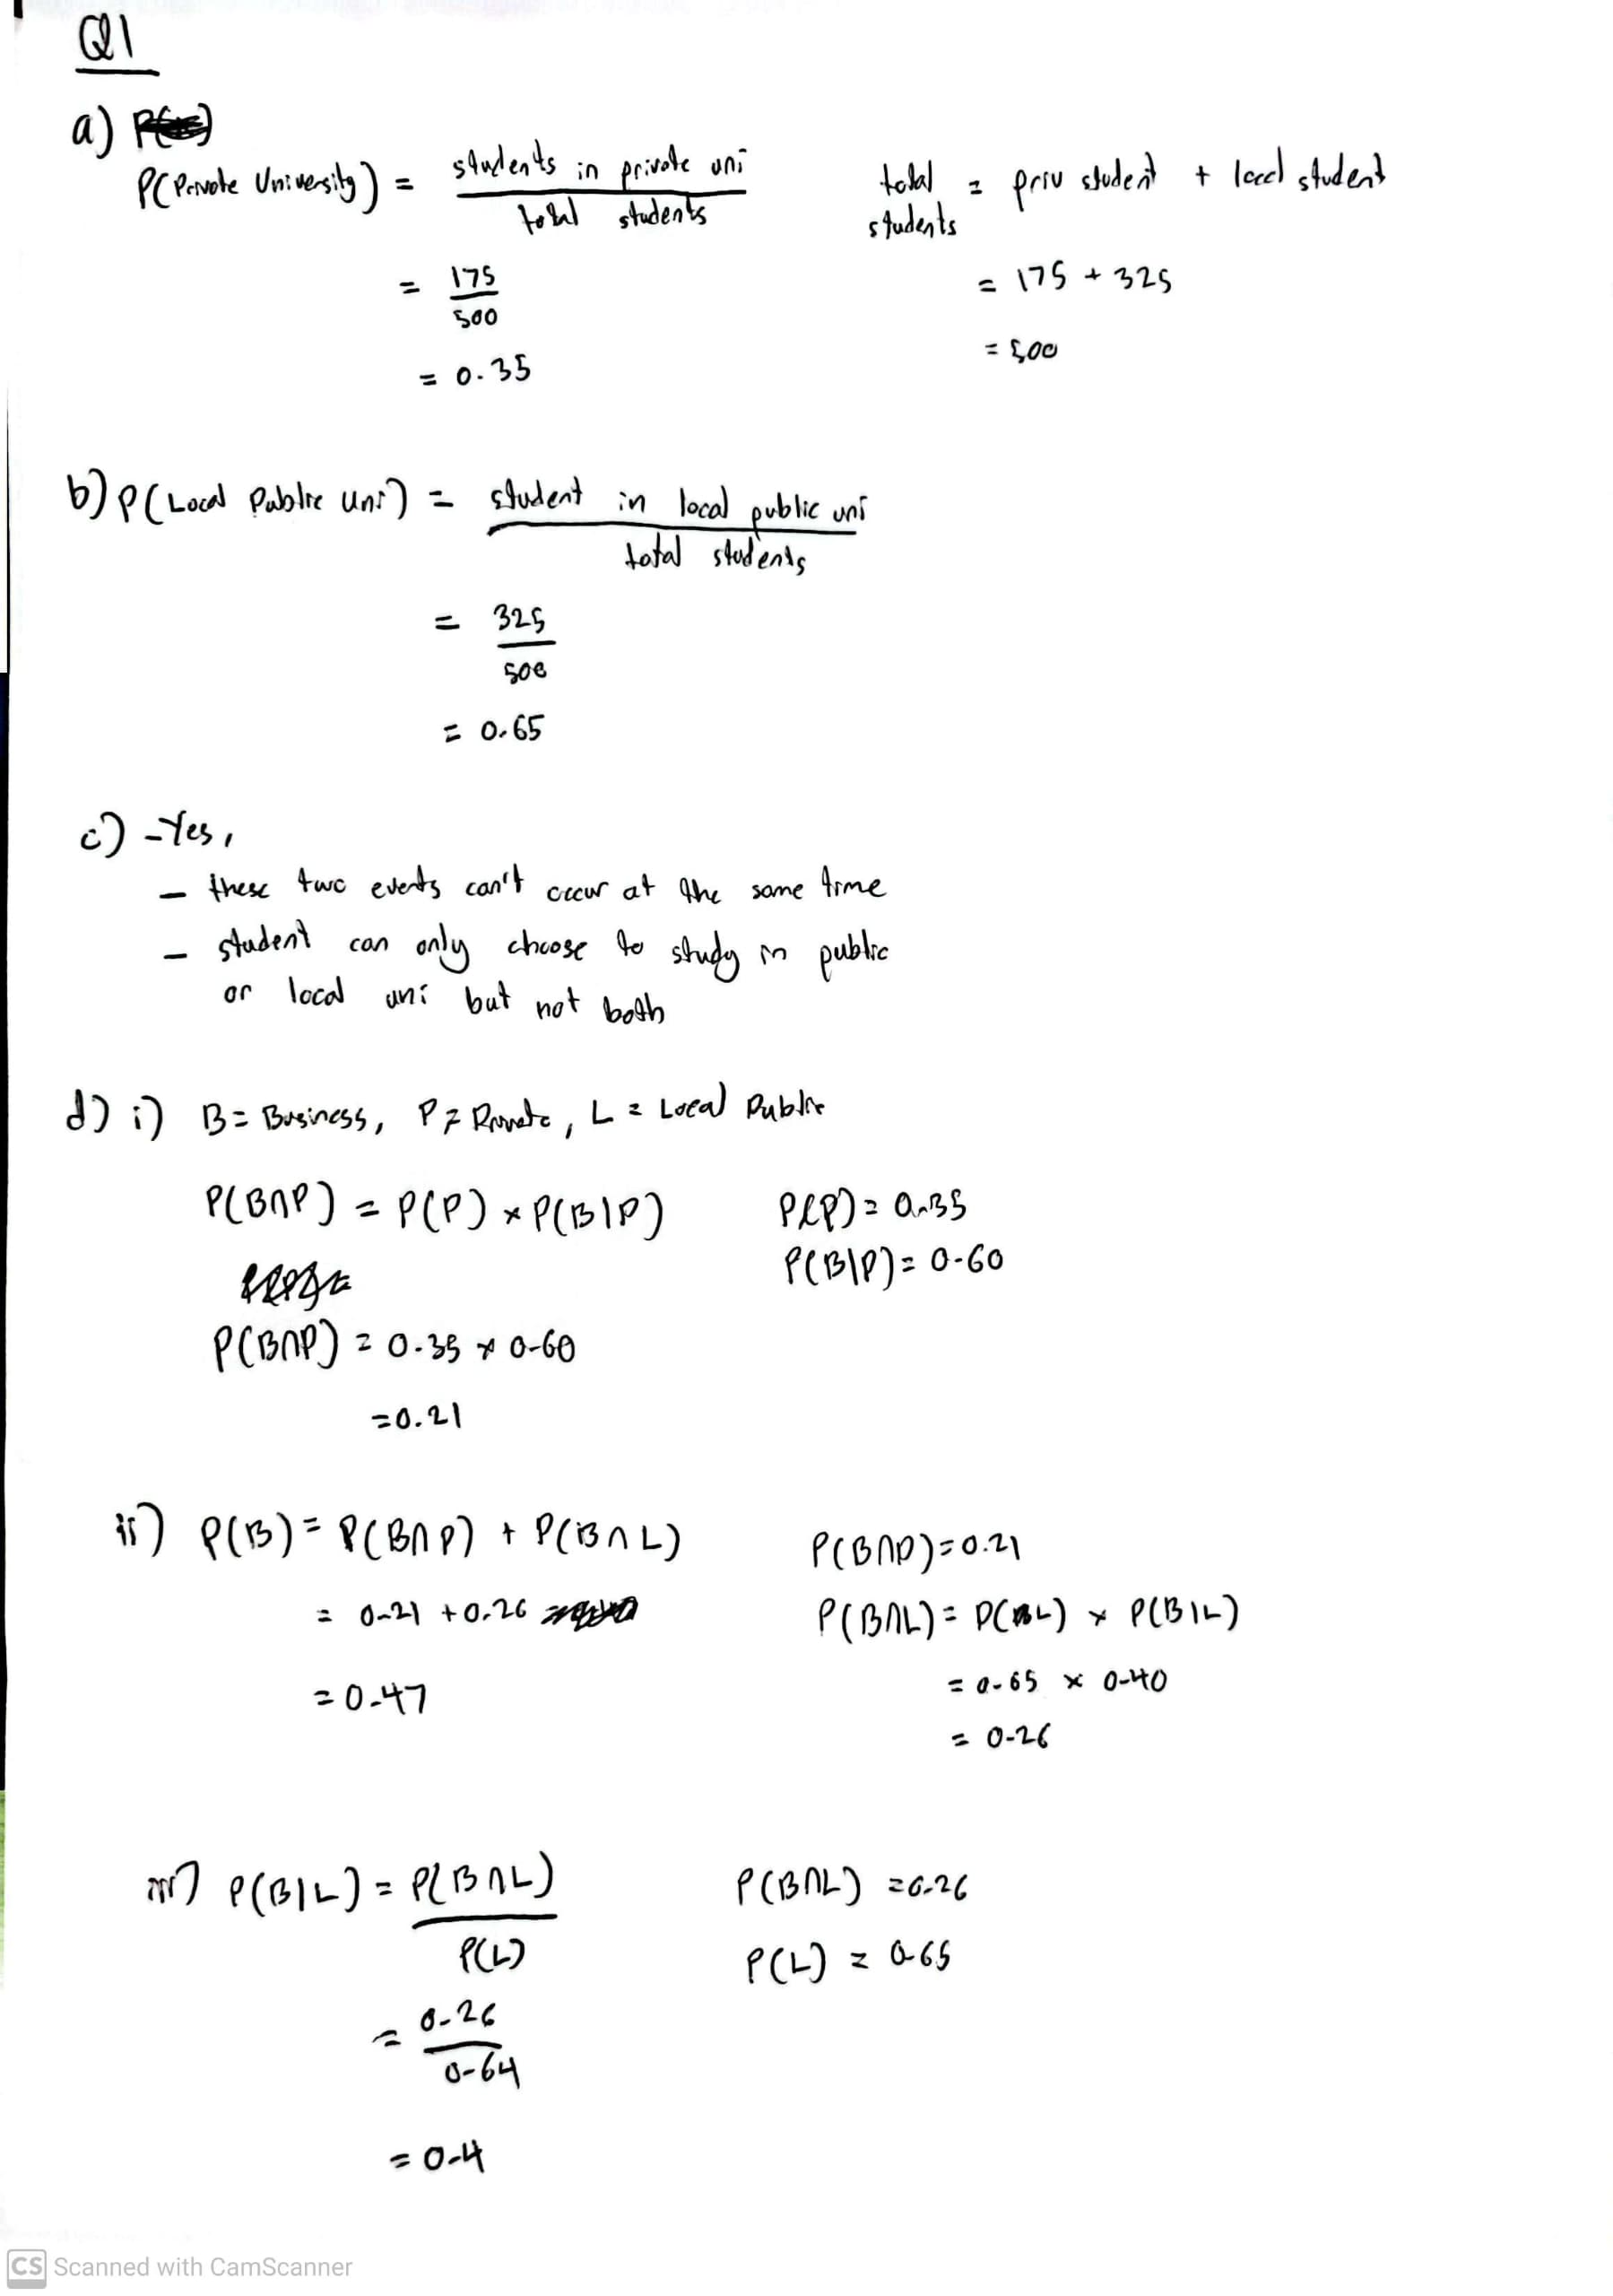 Q1
a)
P(Private University) = students in private uni / total students
total students = priv student + local student
= 175 / 500
= 175 + 325
= 0.35
= 500
b) P(Local Public uni) = student in local public uni / total students
= 325 / 500
= 0.65
c) - Yes,
- these two events can't occur at the same time
- student can only choose to study in public
or local uni but not both
d) i) B = Business, P = Private, L = Local Public
P(B∩P) = P(P) × P(B|P)
P(P) = 0.35
P(B|P) = 0.60
P(B∩P) = 0.35 × 0.60
= 0.21
ii) P(B) = P(B∩P) + P(B∩L)
P(B∩P) = 0.21
= 0.21 + 0.26
P(B∩L) = P(L) × P(B|L)
= 0.47
= 0.65 × 0.40
= 0.26
iii) P(B|L) = P(B∩L) / P(L)
P(B∩L) = 0.26
P(L) = 0.65
= 0.26 / 0.64
= 0.4
CS Scanned with CamScanner